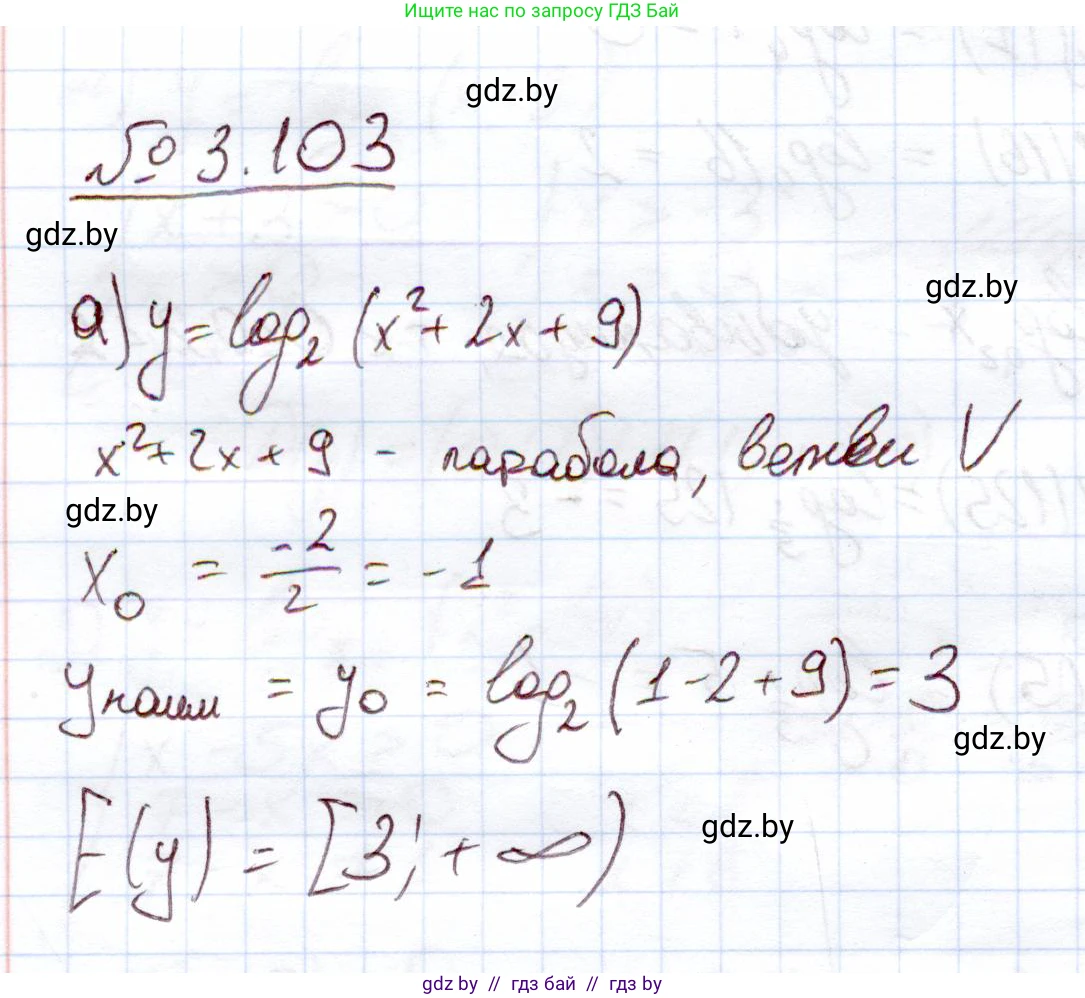 Ищите нас по запросу ГДЗ Бай
gdz.by
№ 3.103
gdz.by
gdz.by
а) y = log₂ (x² + 2x + 9)
x² + 2x + 9 - парабола, ветви V
gdz.by
x₀ = -2/2 = -1
yнаим = y₀ = log₂ (1 - 2 + 9) = 3
gdz.by
gdz.by
E(y) = [3; + ∞)
gdz.by // гдз бай // гдз by